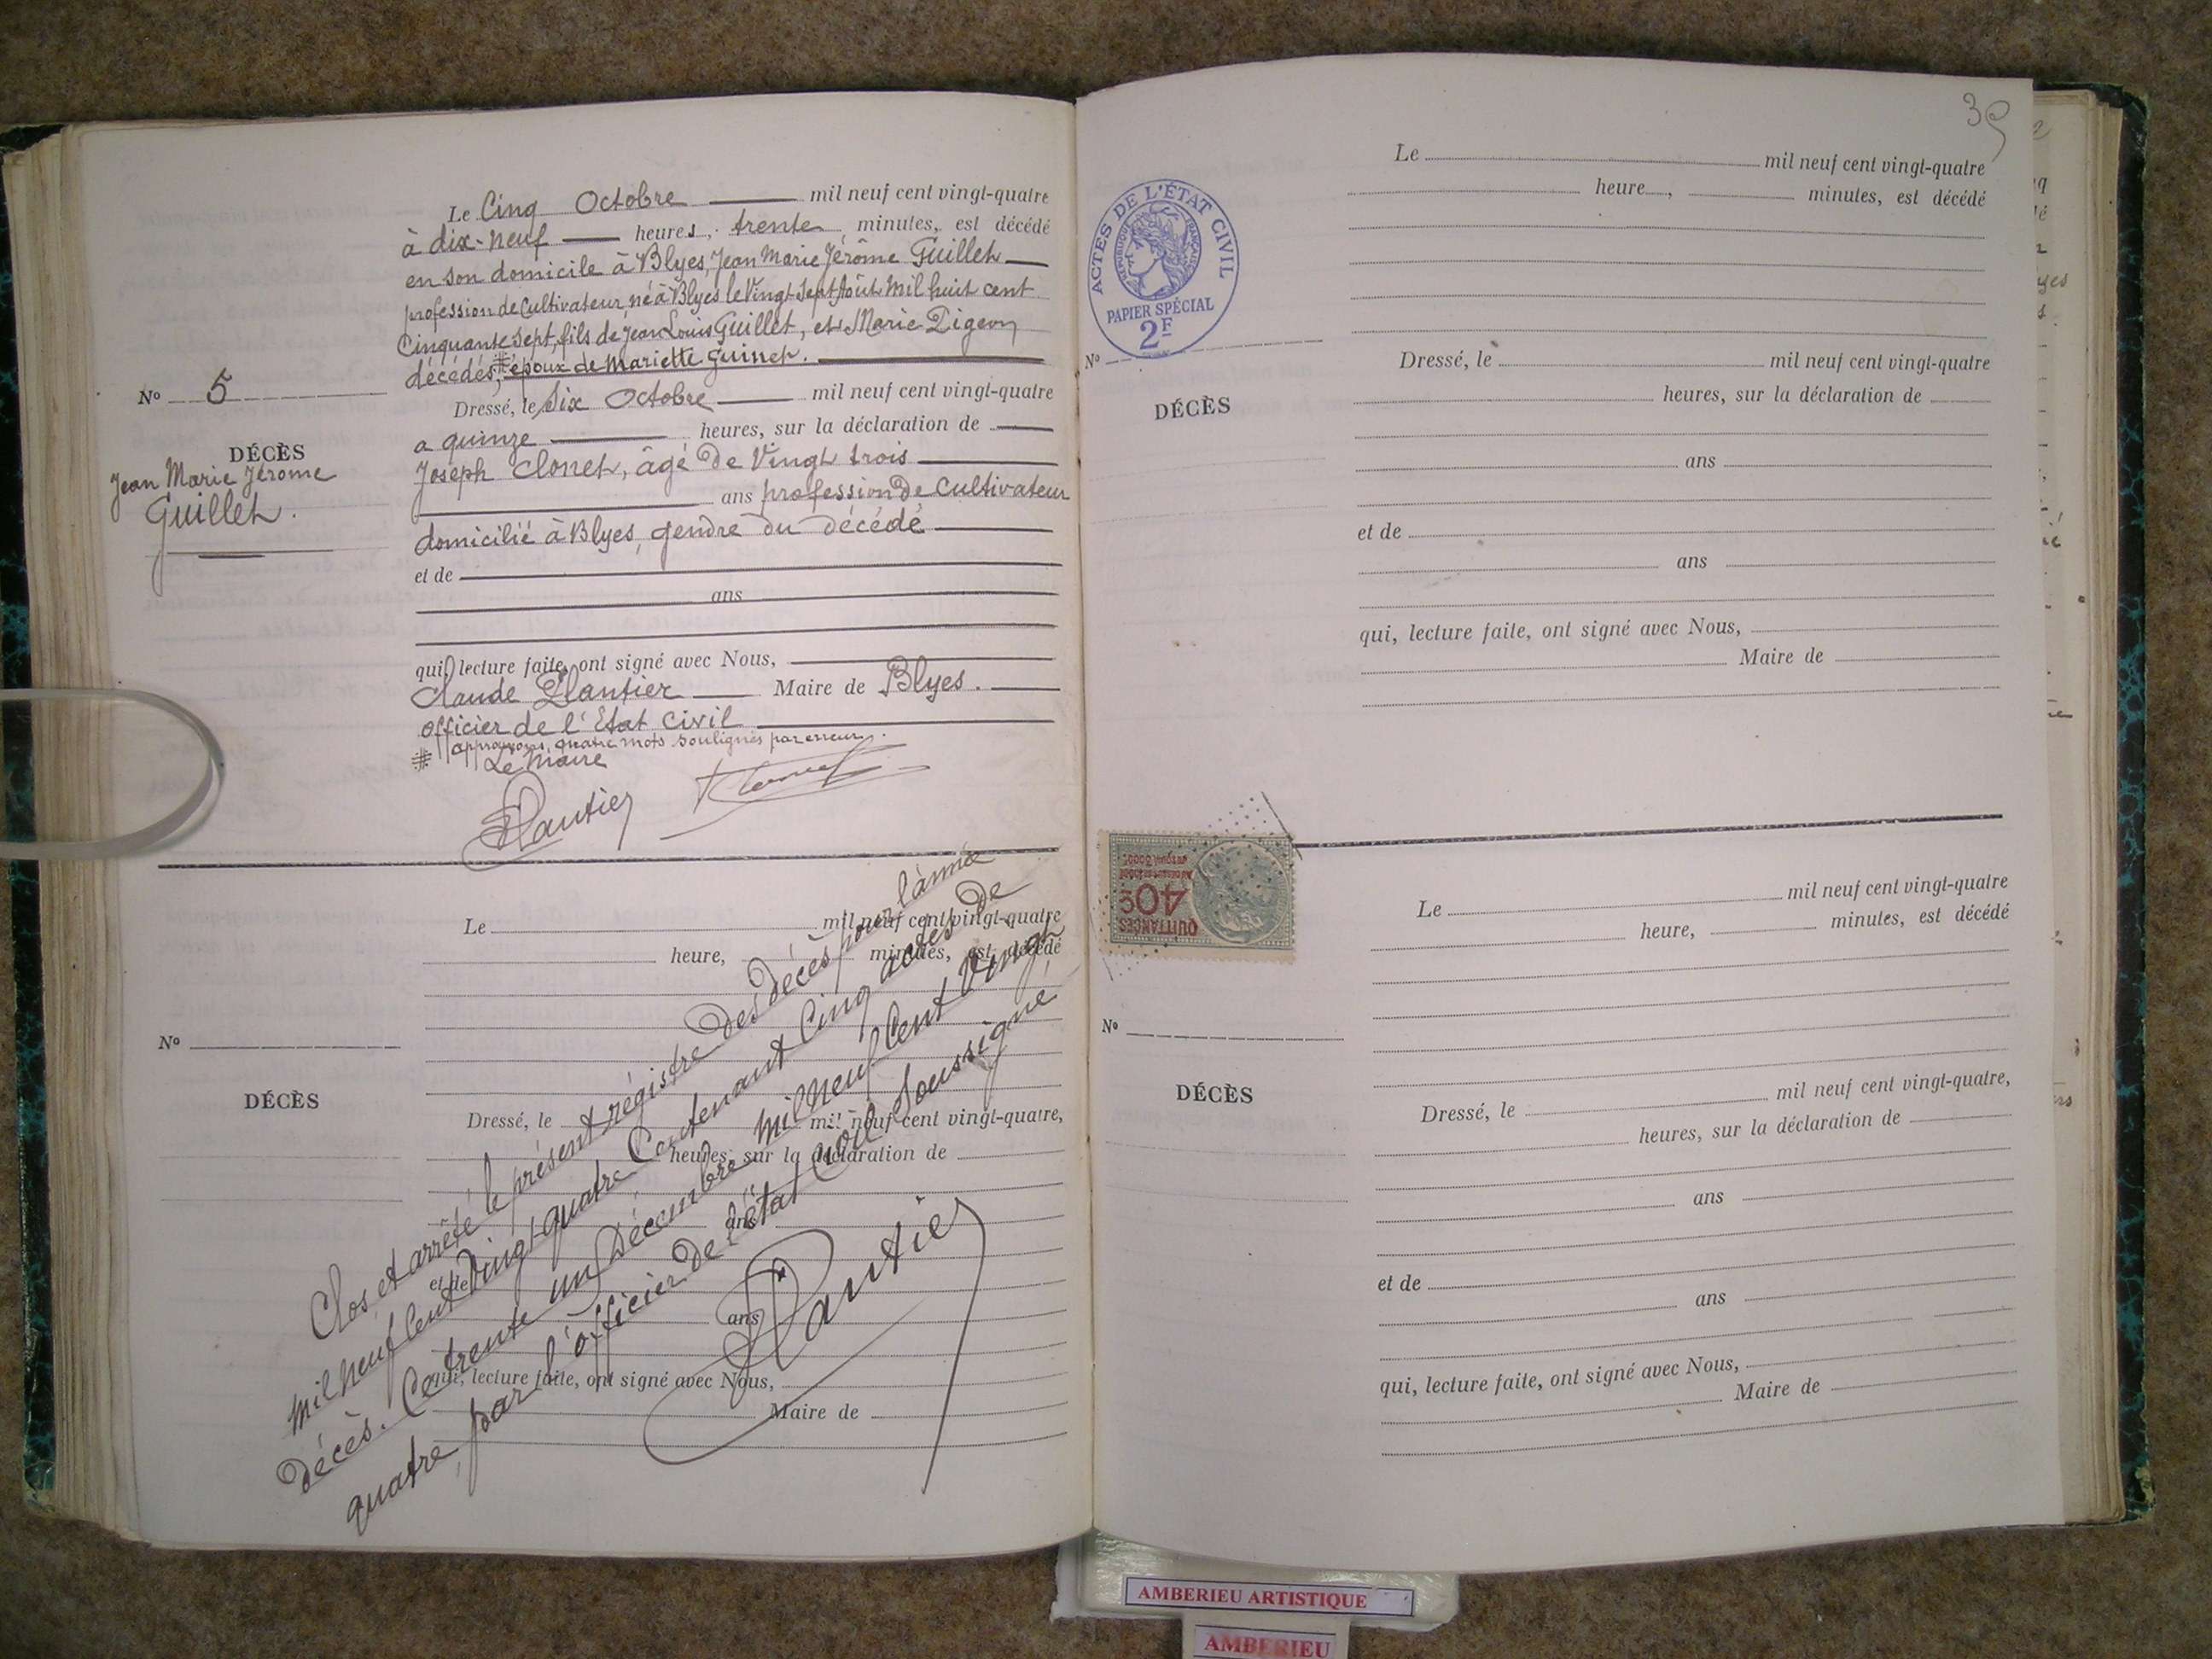 Le Cinq Octobre mil neuf cent vingt-quatre
à dix-neuf heures, trente minutes, est décédé
en son domicile à Blyes, Jean Marie Jérôme Guillet
profession de Cultivateur, né à Blyes le Vingt Sept Août Mil huit cent
Cinquante Sept, fils de Jean Louis Guillet, et Marie Pigeon
décédés, # époux de Mariette Guinet.
Dressé, le Six Octobre mil neuf cent vingt-quatre
a quinze heures, sur la déclaration de
Joseph Clonet, âgé de Vingt trois
ans profession de Cultivateur
domicilié à Blyes, gendre du décédé
et de
ans
qui, lecture faite, ont signé avec Nous,
Claude Plantier Maire de Blyes.
officier de l'Etat Civil
# approuvons quatre mots soulignés par erreur.
Le Maire
Plantier
No 5
DÉCÈS
Jean Marie Jérome
Guillet.
Le mil neuf cent vingt-quatre
heure, minutes, est décédé
No
DÉCÈS
Dressé, le mil neuf cent vingt-quatre,
heures, sur la déclaration de
ans
et de
ans
qui, lecture faite, ont signé avec Nous,
Maire de
Clos et arrêté le présent régistre des décès pour l'année
mil neuf cent vingt-quatre Contenant Cinq actes de
décès. Ce trente un Décembre mil neuf Cent Vingt
quatre, par l'officier de l'état Civil Soussigné
Plantier
39
ACTES DE L'ÉTAT CIVIL
RÉPUBLIQUE FRANÇAISE
PAPIER SPÉCIAL
2F
Le mil neuf cent vingt-quatre
heure, minutes, est décédé
No
DÉCÈS
Dressé, le mil neuf cent vingt-quatre
heures, sur la déclaration de
ans
et de
ans
qui, lecture faite, ont signé avec Nous,
Maire de
QUITTANCES
40c
Le mil neuf cent vingt-quatre
heure, minutes, est décédé
No
DÉCÈS
Dressé, le mil neuf cent vingt-quatre,
heures, sur la déclaration de
ans
et de
ans
qui, lecture faite, ont signé avec Nous,
Maire de
AMBERIEU ARTISTIQUE
AMBERIEU